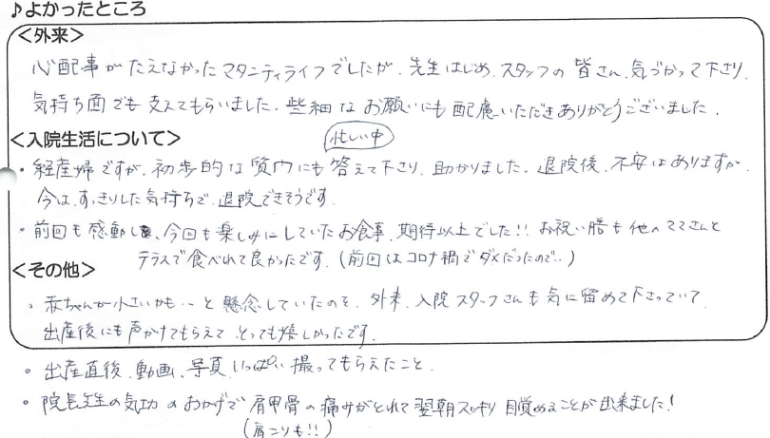 ♪よかったところ
<外来>
心配事がたえなかったマタニティライフでしたが、先生はじめ、スタッフの皆さん、気づかって下さり、
気持ち面でも支えてもらいました。些細なお願いにも配慮いただきありがとうございました。
<入院生活について>
忙しい中
・経産婦ですが、初歩的な質問にも答えて下さり、助かりました。退院後、不安はありますが、
今は、すっきりした気持ちで、退院できそうです。
・前回も感動し、今回も楽しみにしていたお食事、期待以上でした!! お祝い膳も他のママさんと
テラスで食べれて良かったです。(前回はコロナ禍でダメだったので‥)
<その他>
・赤ちゃんが小さいかも‥と懸念していたのを、外来、入院スタッフさんも気に留めて下さっていて、
出産後にも声かけてもらえて、とっても嬉しかったです。
・出産直後、動画、写真、いっぱい撮ってもらえたこと。
・院長先生の気功のおかげで肩甲骨の痛みがとれて翌朝スッキリ目覚めることが出来ました!
(肩こりも!!)